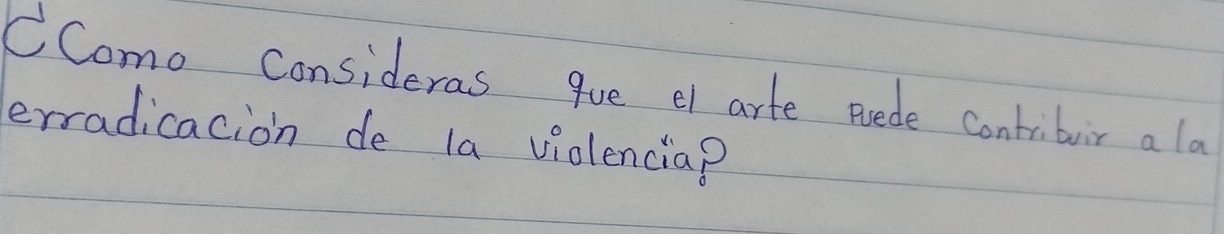 ¿Como consideras que el arte puede contribuir a la
erradicación de la violencia?